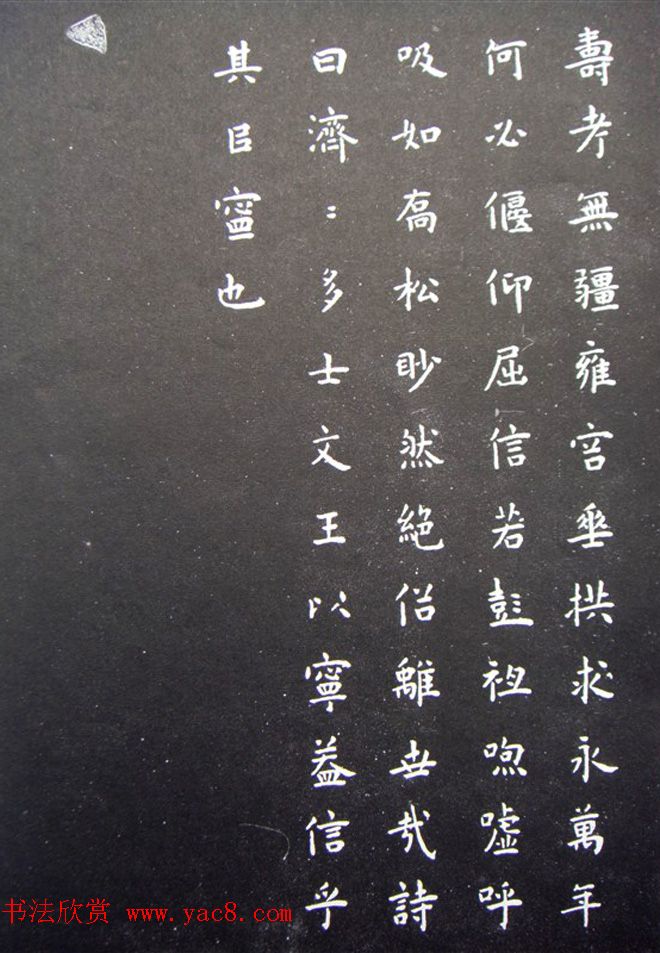 壽考無疆雍容垂拱求永萬年
何必偃仰屈信若彭祖喣嘘呼
吸如喬松眇然絕俗離世哉詩
曰濟〻多士文王以寧葢信乎
其㠯寍也
书法欣赏 www.yac8.com